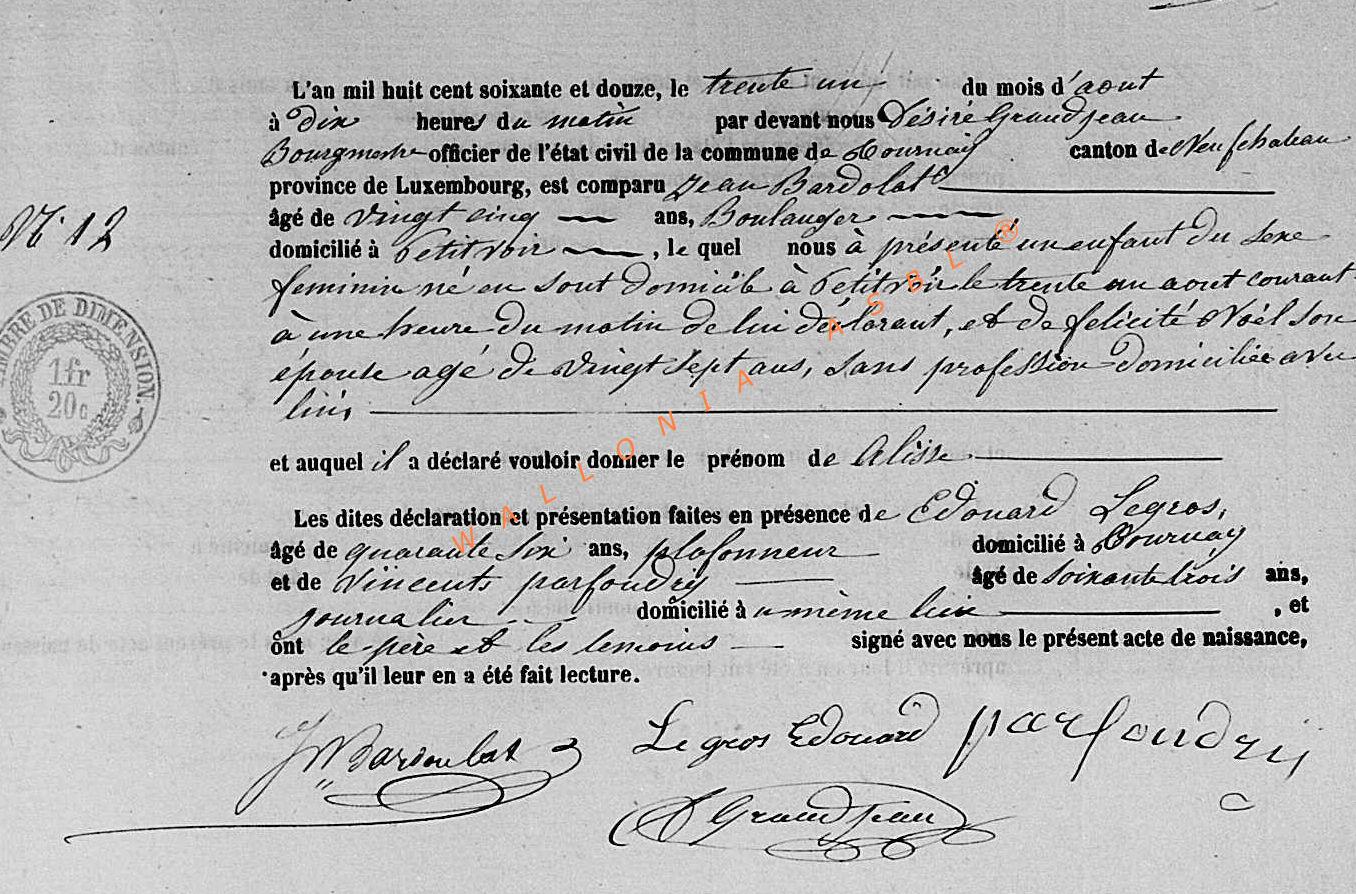 L'an mil huit cent soixante et douze, le trente un du mois d'aout
à Dix heures du matin par devant nous Désiré Grandjean
Bourgmestre officier de l'état civil de la commune de Tournay canton de Neufchateau
province de Luxembourg, est comparu Jean Bardolat
N° 12
âgé de vingt cinq ans, Boulanger
domicilié à Petitvoir, le quel nous à présenté un enfant du sexe
feminin né en sont domicile à Petitvoir le trente un aout courant
à une heure du matin de lui déclarant, et de felicité Noël son
épouse agé de vingt sept ans, sans profession domiciliée avec
lui,
TIMBRE DE DIMENSION
1fr
20c
et auquel il a déclaré vouloir donner le prénom de Alisse
Les dites déclaration et présentation faites en présence de Edouard Legros,
âgé de quarante six ans, plafonneur domicilié à Tournay
et de Vincent parfondry âgé de soixante trois ans,
journalier domicilié à u même lieu, et
ont le père et les temoins signé avec nous le présent acte de naissance,
après qu'il leur en a été fait lecture.
Legros Edouard parfondry
D Grandjean
WALLONIA ASBL ®